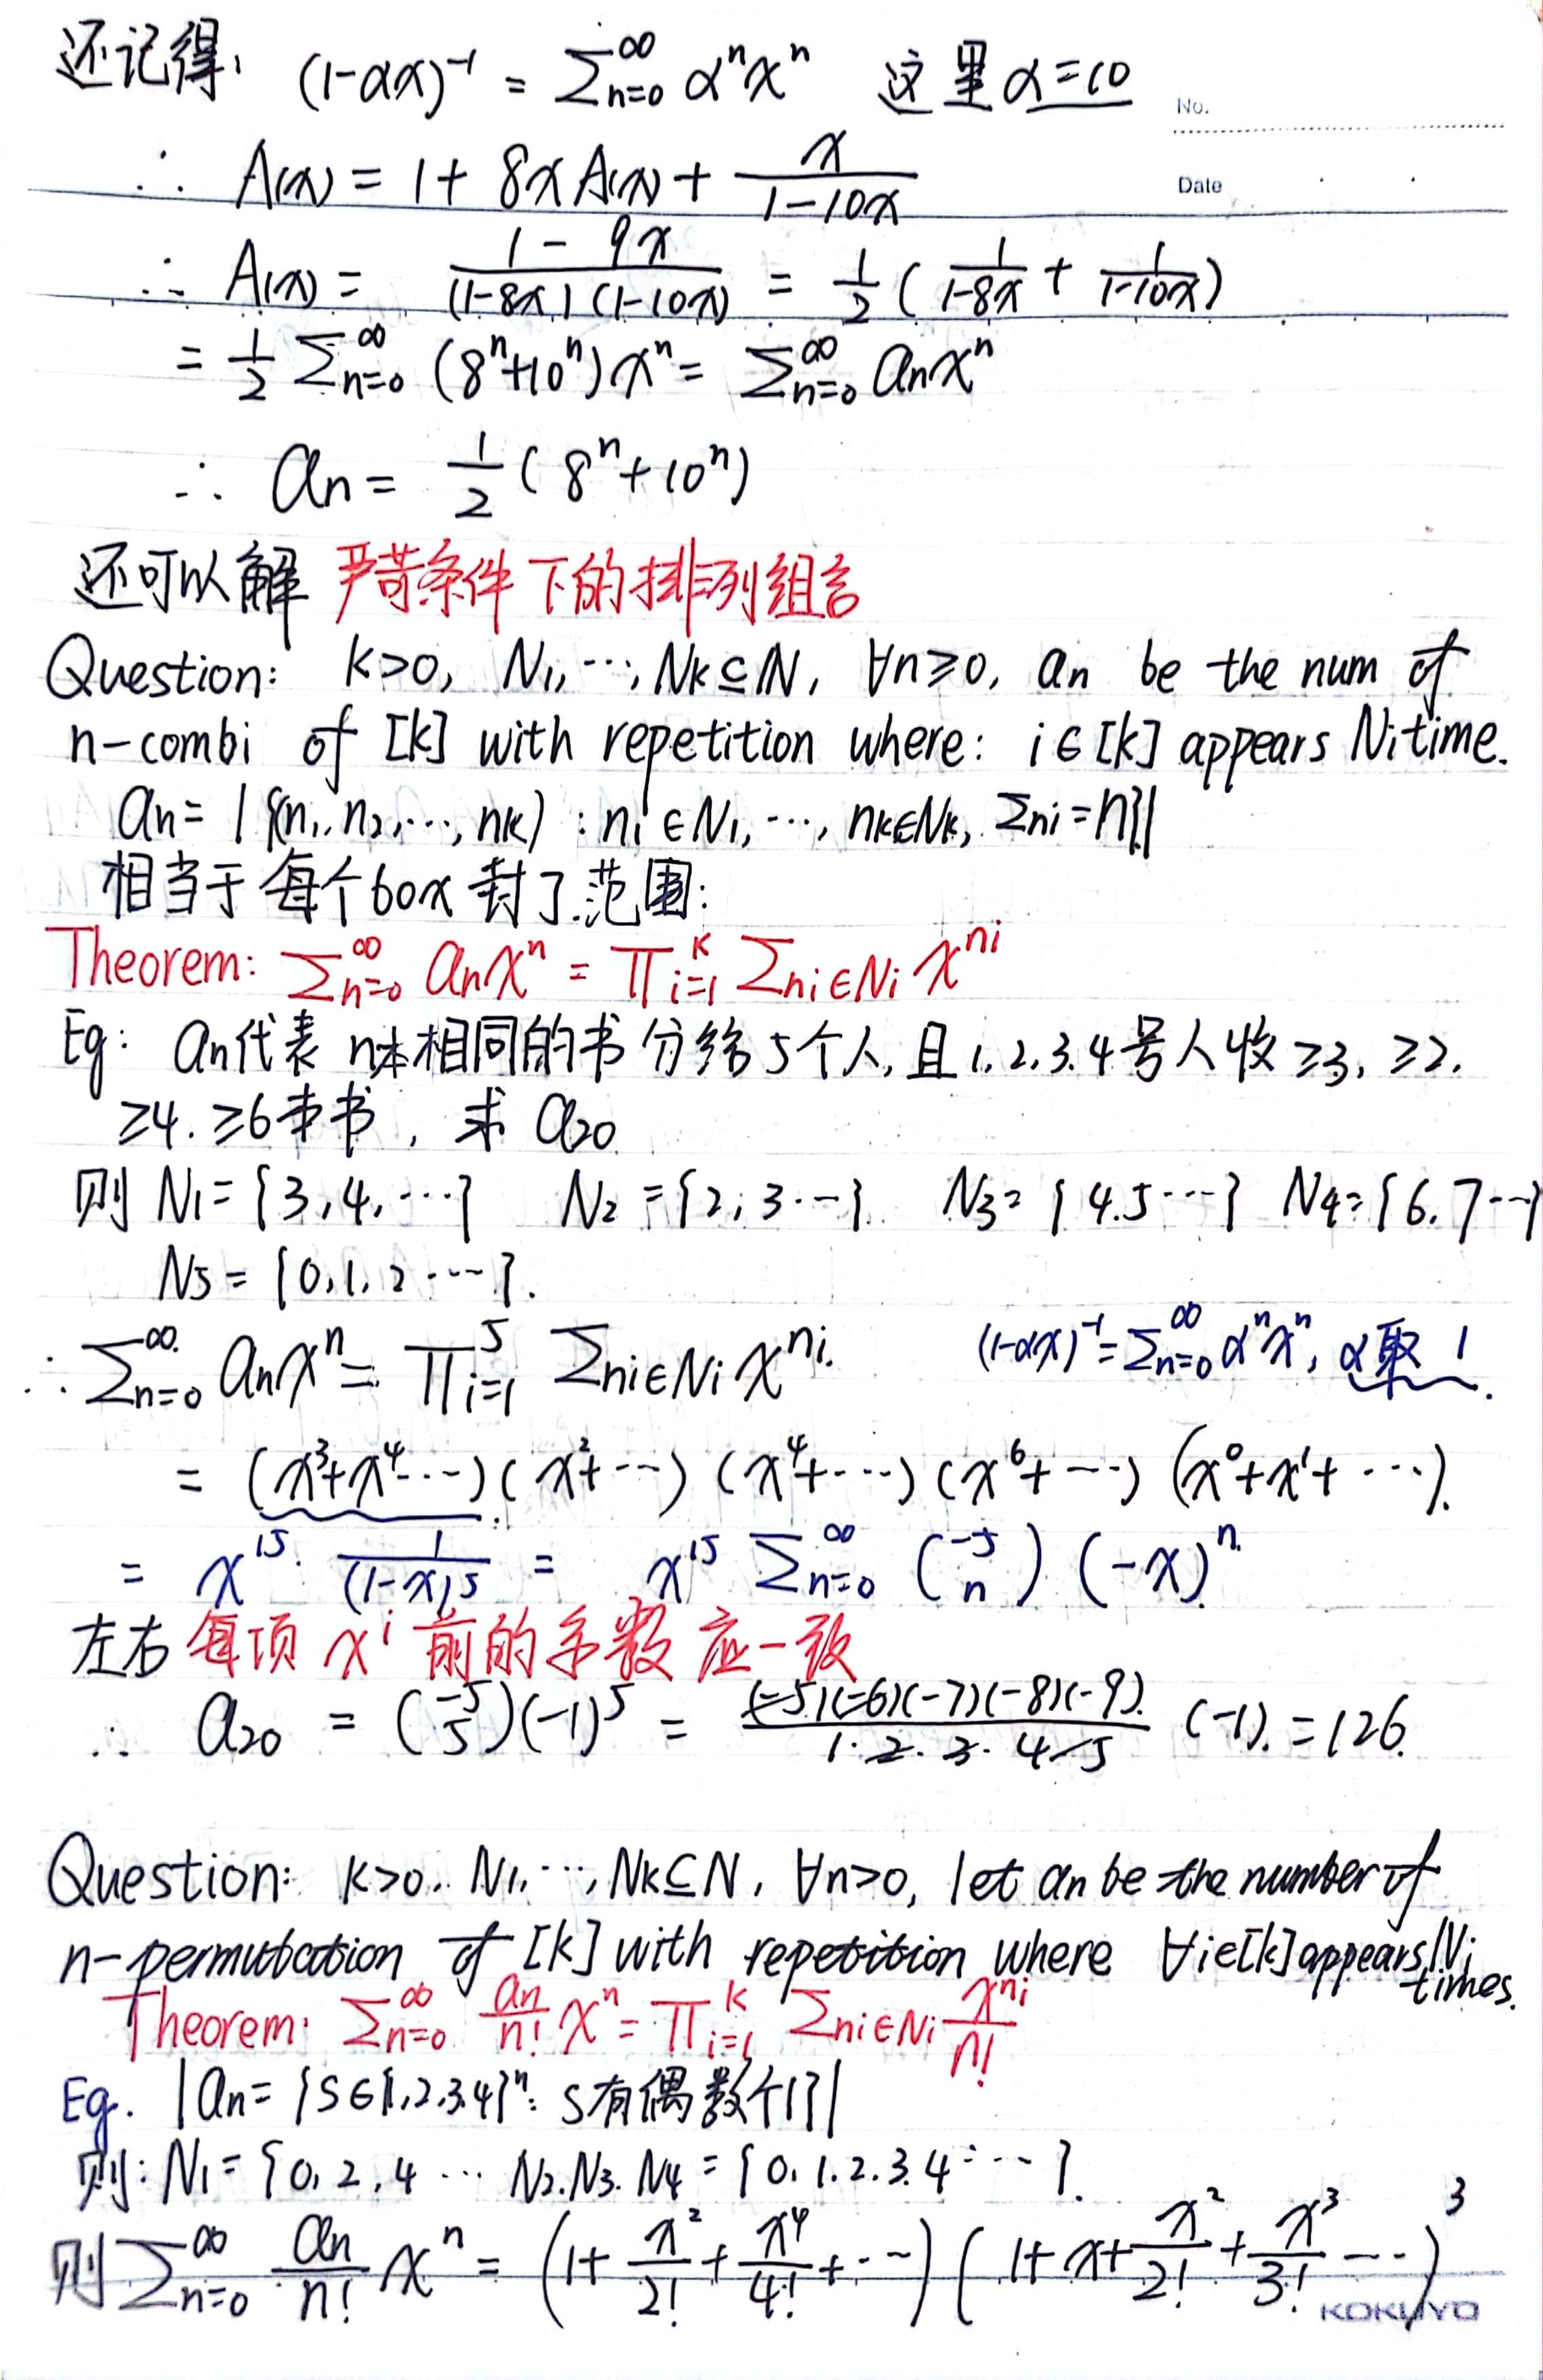 还记得: (1-αx)⁻¹ = ∑ₙ₌₀^∞ αⁿxⁿ 这里α=10
No.
Date
∴ A(x) = 1 + 8xA(x) + x/(1-10x)
∴ A(x) = (1-9x)/((1-8x)(1-10x)) = 1/2 (1/(1-8x) + 1/(1-10x))
= 1/2 ∑ₙ₌₀^∞ (8ⁿ+10ⁿ)xⁿ = ∑ₙ₌₀^∞ aₙxⁿ
∴ aₙ = 1/2 (8ⁿ+10ⁿ)
还可以解 严苛条件下的排列组合
Question: k>0, N₁,…,Nₖ⊆ℕ, ∀n≥0, aₙ be the num of
n-combi of [k] with repetition where: i∈[k] appears Nᵢ time.
aₙ = |{(n₁,n₂,…,nₖ) : n₁∈N₁,…, nₖ∈Nₖ, ∑nᵢ=n}|
相当于每个box封了范围:
Theorem: ∑ₙ₌₀^∞ aₙxⁿ = ∏ᵢ₌₁^k ∑nᵢ∈Nᵢ x^nᵢ
Eg: aₙ代表 n本相同的书分给5个人,且1.2.3.4号人收≥3, ≥2,
≥4. ≥6本书, 求 a₂₀
则 N₁={3,4,…} N₂={2,3…} N₃={4.5…} N₄={6.7…}
N₅={0,1,2…}.
∴ ∑ₙ₌₀^∞ aₙxⁿ = ∏ᵢ₌₁^5 ∑nᵢ∈Nᵢ x^nᵢ. (1-αx)⁻¹=∑ₙ₌₀^∞ αⁿxⁿ, α取1.
= (x³+x⁴…)(x²+…)(x⁴+…)(x⁶+…)(x⁰+x¹+…).
= x¹⁵· 1/(1-x)⁵ = x¹⁵ ∑ₙ₌₀^∞ (-5 n) (-x)ⁿ
左右 每项 xⁱ 前的系数应一致
∴ a₂₀ = (-5 5)(-1)⁵ = (-5)(-6)(-7)(-8)(-9)/(1·2·3·4·5) (-1). = 126.
Question: k>0. N₁,…,Nₖ⊆N, ∀n>0, let aₙ be the number of
n-permutation of [k] with repetition where ∀i∈[k] appears Nᵢ
times.
Theorem: ∑ₙ₌₀^∞ aₙ/n! xⁿ = ∏ᵢ₌₁^k ∑nᵢ∈Nᵢ x^nᵢ/n!
Eg. |aₙ={S∈{1,2,3,4}ⁿ: S有偶数个1}|
则: N₁={0,2,4… N₂.N₃.N₄={0.1.2.3.4…}.
则 ∑ₙ₌₀^∞ aₙ/n! xⁿ = (1+x²/2!+x⁴/4!+…)(1+x+x²/2!+x³/3!…)³
KOKUYO